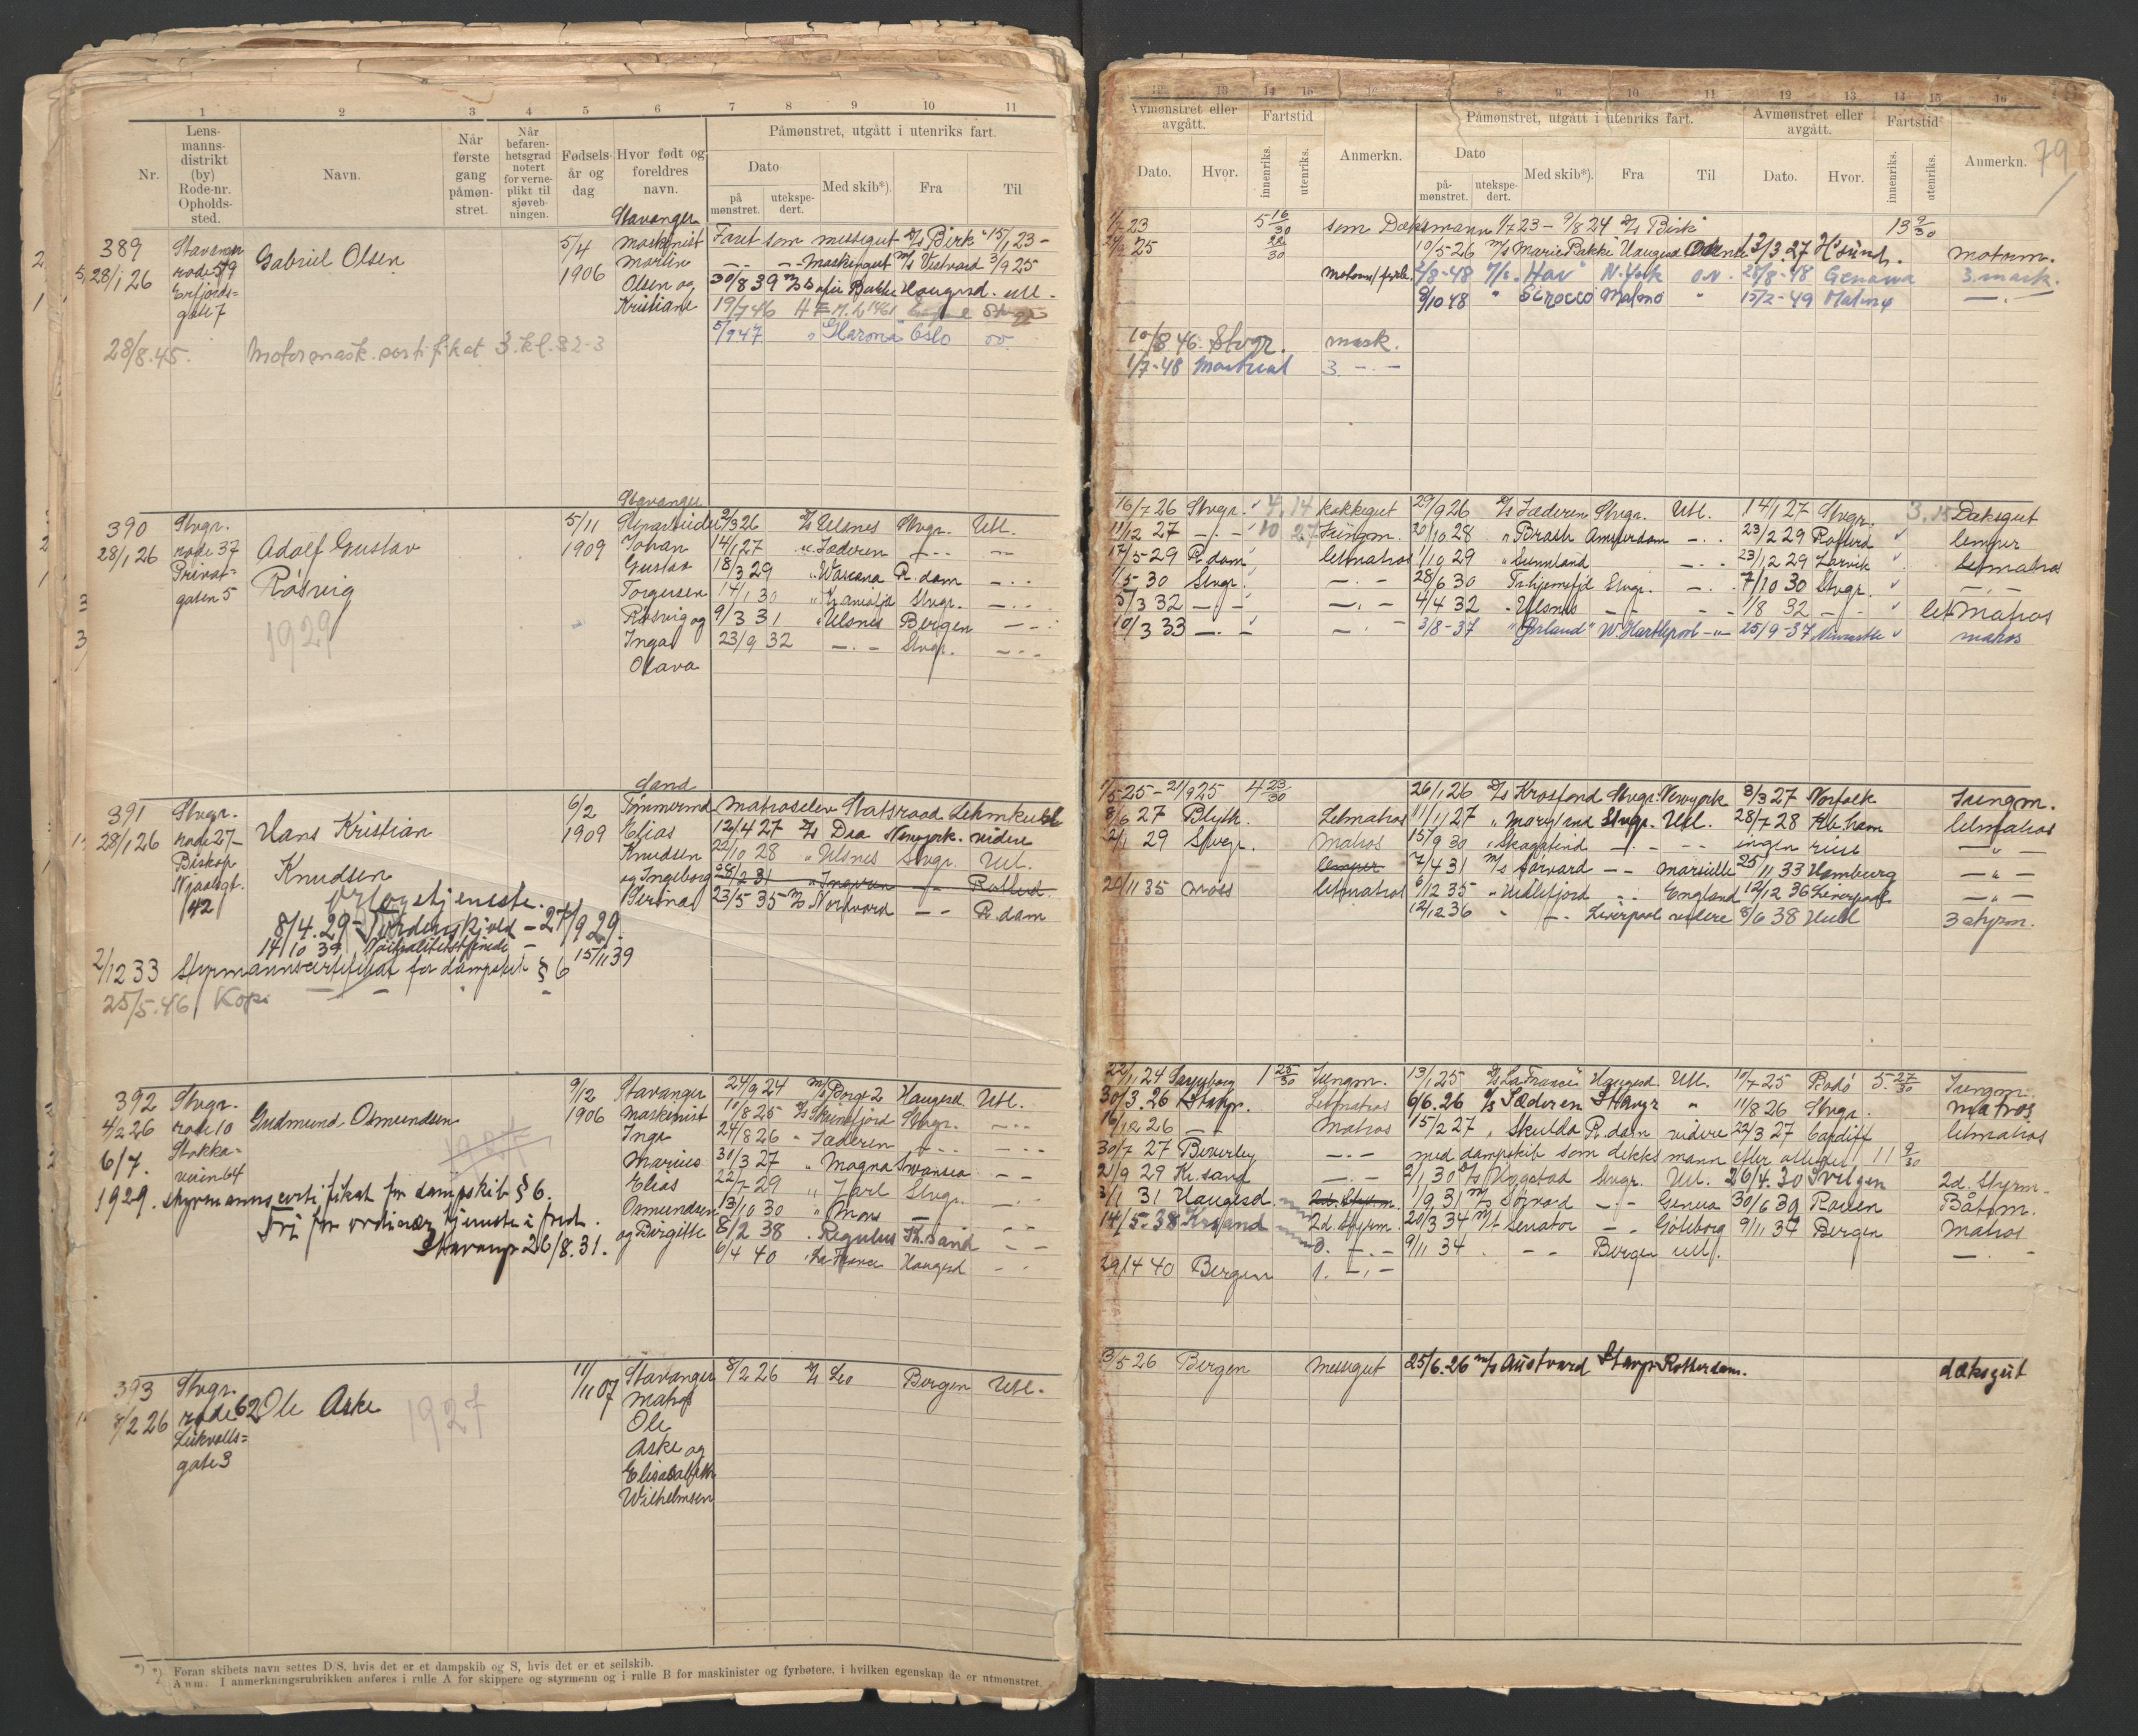 1 2 3 4 5 6 7 8 9 10 11
Nr.
Lens-
manns-
distrikt
(by)
Rode-nr.
Opholds-
sted.
Navn.
Når
første
gang
påmøn-
stret.
Når
befaren-
hetsgrad
notert
for verne-
plikt til
sjøveb-
ningen.
Fødsels-
år og
dag
Hvor født og
foreldres
navn.
Påmønstret, utgått i utenriks fart.
Dato
på
mønstret.
utekspe-
dert.
Med skib*).
Fra
Til
389
28/1 26
Stavanger
rode 59
Erfjords=
gate 7
Gabriel Olsen
5/4
1906
Stavanger
Maskinist
Martin
Olsen og
Kristiane
Faret som messegut D/S Birk 15/1 23 -
- - - Maskingut M/S Vestvard 3/9 25
30/8 39 M/S Marie Bakke Haugesd. utl.
19/7 46
5/9 47 " Harma" Oslo oo
28/8.45. Motormask. sertifikat 3. kl. 82-3
390
28/1 26
Stvgr.
rode 37
Privat=
gaten 5
Adolf Gustav
Røsvig
1929
5/11
1909
Stavanger
Johan
Gustav
Torgersen
Røsvig og
Inga
Olava
2/3 26 D/S Ulsnes Stvgr. Utl.
14/1 27 " Jæderen - - -
18/3 29 " Wascana R.dam - - -
14/1 30 Stvgr. - - -
9/3 31 " Ulsnes Bergen - - -
23/9 32 - - Stvgr. - - -
391
28/1 26
Stvgr.
rode 27-
Biskop
Njaalsgt.
42
Hans Kristian
Knudsen
6/2
1909
Sand
Tømmermd
Elias
Knudsen
og Ingeborg
Serina
Matroselev Statsraad Lehmkuhl
12/4 27 D/S Dea Newyork. videre
22/10 28 " Ulsnes Stvgr. Utl.
28/2 31 " Ingeren - - Rotterd.
23/5 35 M/S Nordvard - - R.dam
orlogstjeneste.
8/4.29 - Tordenskjold - 27/9 29.
14/10 39 Nøitralitetstjeneste - 15/11 39
2/12 33 Styrmannscertifikat for dampskib § 6
25/5.46 Kopi
392
4/2 26
6/7.
1929.
Stvgr.
rode 10
Stokka=
veien 64
Gudmund Osmundsen
9/12
1906
Stavanger
Maskinist
Inge
Marius
Elias
Osmundsen
og Birgitte
24/9 24 M/S Borgå 2 Haugesd Utl.
10/8 25 D/S Skiensfjord Stvgr. - - -
24/8 26 " Jæderen - - - -
30/3 27 " Magna Swansea - -
22/7 29 " Jarl Stvgr. - -
13/10 30 " Mons - - -
8/2 38 " Regulus Kr.sand - -
6/4 40 " La France Haugesd - -
styrmannscertifikat for dampskib § 6.
Fri for ordinær tjeneste i fred.
Stavanger 26/8.31.
393
8/2 26
Stvgr.
rode 62
gate 3
Ole Aske
1927
11/11 07
Stavanger
Matros
Ole
Aske og
Elisabeth
Wilhelmsen
8/2 26 D/S Leo Bergen Utl.
*) Foran skibets navn settes D/S, hvis det er et dampskib og S, hvis det er et seilskib.
Anm. I anmerkningsrubrikken anføres i rulle A for skippere og styrmenn og i rulle B for maskinister og fyrbøtere, i hvilken egenskap de er utmønstret.
12 13 14 15 16 7 8 9 10 11 12 13 14 15 16
79
Avmønstret eller
avgått.
Fartstid
Anmerkn.
Påmønstret, utgått i utenriks fart.
Avmønstret eller
avgått.
Fartstid
Anmerkn.
Dato. Hvor. innenriks. utenriks.
Dato
på-
mønstret.
utekspe-
dert.
Med skib*). Fra Til Dato. Hvor. innenriks. utenriks.
1/7 23 5 16/30 som Dæksmann 1/7 23 - 9/8 24 D/S Birk 13 9/30
25 22/30 10/5-26 M/S Marie Bakke Haugesd Odense 12/3 27 H.sund. motorm.
2/8-48 M/S "Hav" N.York o.v. 28/8-48 Genova 3. mask.
9/10 48 " Sirocco Malmø " 15/2-49 Malmø - . -
10/8 46. Stvgr. mask.
1/7-48 Montreal 3. - . -
16/7 26 Stvgr. 4, 14 kokkegut 29/9 26 D/S Jæderen Stvgr. Utl. 14/1 27 Stvgr. 3, 15 Dæksgut
11/12 27 - . - 10 27 Jungm. 20/10 28 " Brask Amsterdam - . - 23/2 29 Rotterd lemper
17/5-29 R.dam letmatros 1/10 29 " Sunnland - . - 23/12 29 Larvik letmatros
1/5 30 Stvgr. - . - 28/6 30 Stvgr. - . - 7/10 30 Stvgr. - . -
5/3 32 - . - - . - 4/4 32 " Ulsnes - - - - 1/8 32 - . - let Matros
10/3 33 - . - - . - 3/8-37 "Ørland" W. Hartlepool - " - 25/9-37 Newcastle matros
1/5 25 - 21/9 25 4 23/30 26/1 26 D/S Krosfond Stvgr. Newyork 8/3 27 Norfolk Jungm.
8/6 27 Blyth. Letmatros 11/11 27 " Maryland Stvgr. Utl. 28/7 28 Kb.havn letmatros
21/1 29 Stvgr. Matros 15/9 30 " Skagatind - . - - - ingen reise - " -
lemper 7/4 31 M/S Sørvard - - Marseille 25/11 33 Hamburg - " -
20/11 35 Moss letmatros 6/12 35 " Hellefjord " England 12/12 36 Liverpool - " -
12/12 36 " - . - Liverpool videre 8/6 38 Hull 3 styrm.
22/11 24 Sarpsborg 1 25/30 Jungm. 13/1 25 D/S La France Haugesd. Utl. 10/7-25 Bodø 5. 27/30 Jungm.
30/3.26 Stavgr. Letmatros 6/6.26 D/S Jæderen Stavgr " 11/8 26 Stvgr. matros
16/12 26 - - Matros 15/2 27 " Skulda R.dam videre 22/3 27 Cardiff letmatros
30/7 27 Beverley - . - med dampskib som dekksmann efter attester 11 9/30
2/9 29 Kr.sand - . - 2/1 30 D/S Hopstad Stvgr. Utl. 26/4.30 Svelgen 2d. Styrm.
3/1 31 Haugesd. 2d. Styrm. 1/9 31 M/S Sørvard - . - Genua 30/6 32 Rouen Båtsm.
14/5.38 Kr.sand 2d. styrm. 20/3 34 M/T Senator - . - Göteborg 9/11 34 Bergen Matros
3. - . - 9/11 34 . - - Bergen utl. - . -
29/4 40 Bergen 1. - . -
3/5 26 Bergen Messegut 25/6.26 M/S Austvard Stavgr Rotterdam. dæksgut